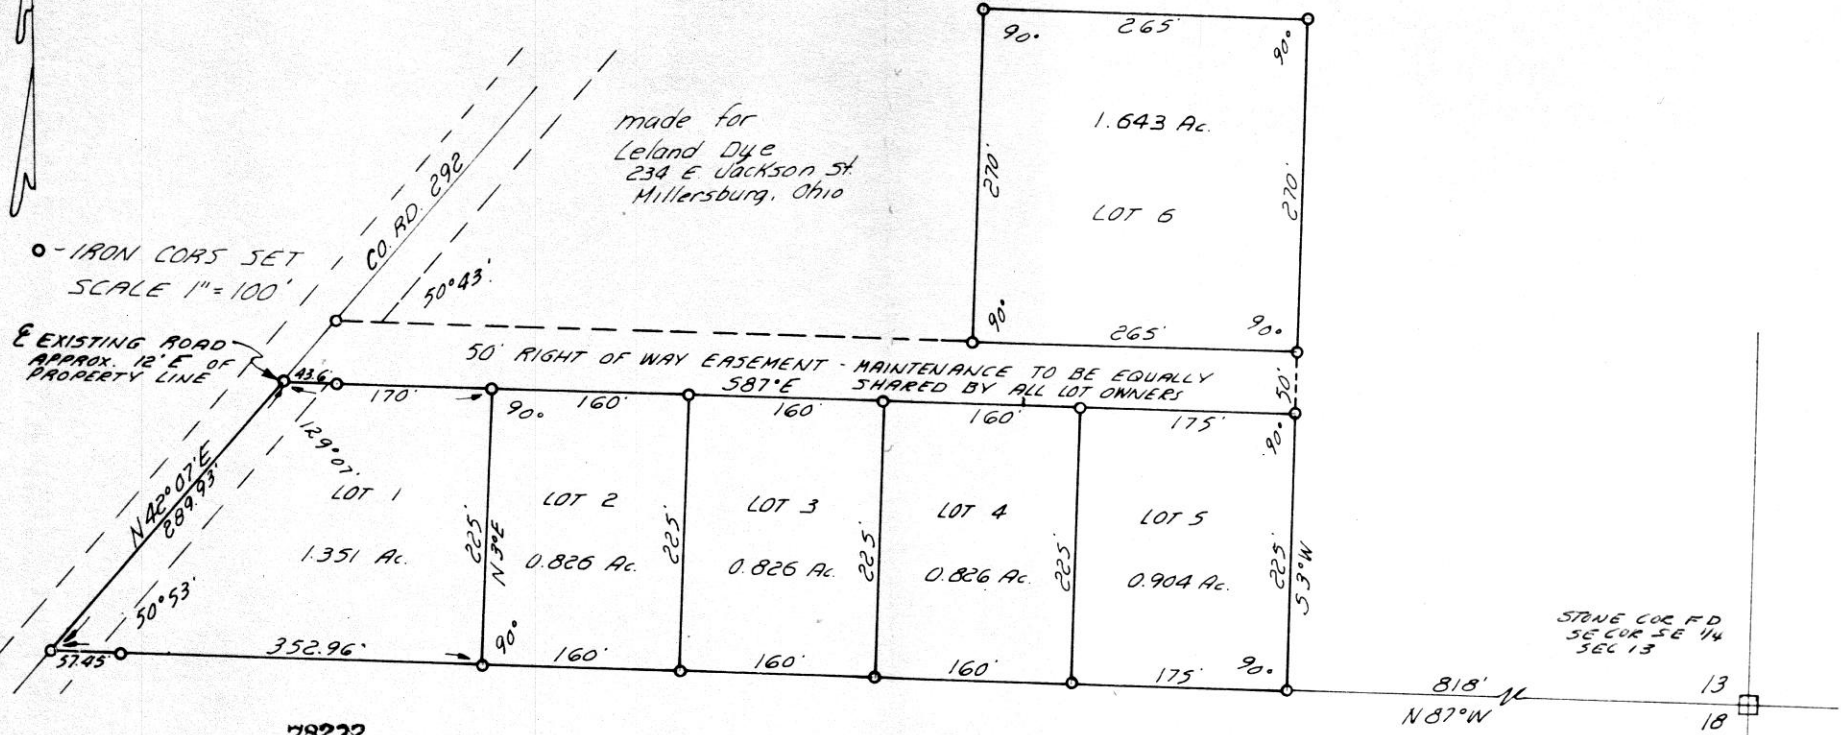 265'
90°
90°
1.643 Ac.
270'
270'
LOT 6
90°
90°
265'
made for
Leland Dye
234 E. Jackson St.
Millersburg, Ohio
CO. RD. 292
50°43'
o - IRON CORS SET
SCALE 1"= 100'
℄ EXISTING ROAD
APPROX. 12' E OF
PROPERTY LINE
50' RIGHT OF WAY EASEMENT - MAINTENANCE TO BE EQUALLY
SHARED BY ALL LOT OWNERS
S87°E
50'
43.6'
170'
160'
160'
160'
175'
90°
90°
129°07'
N42°07'E
289.93'
LOT 1
1.351 Ac.
225'
N3°E
LOT 2
0.826 Ac.
225'
LOT 3
0.826 Ac.
225'
LOT 4
0.826 Ac.
225'
LOT 5
0.904 Ac.
225'
S3°W
50°53'
57.45'
352.96'
90°
160'
160'
160'
175'
90°
818'
N87°W
STONE COR FD
SE COR SE 1/4
SEC 13
13
18
78232